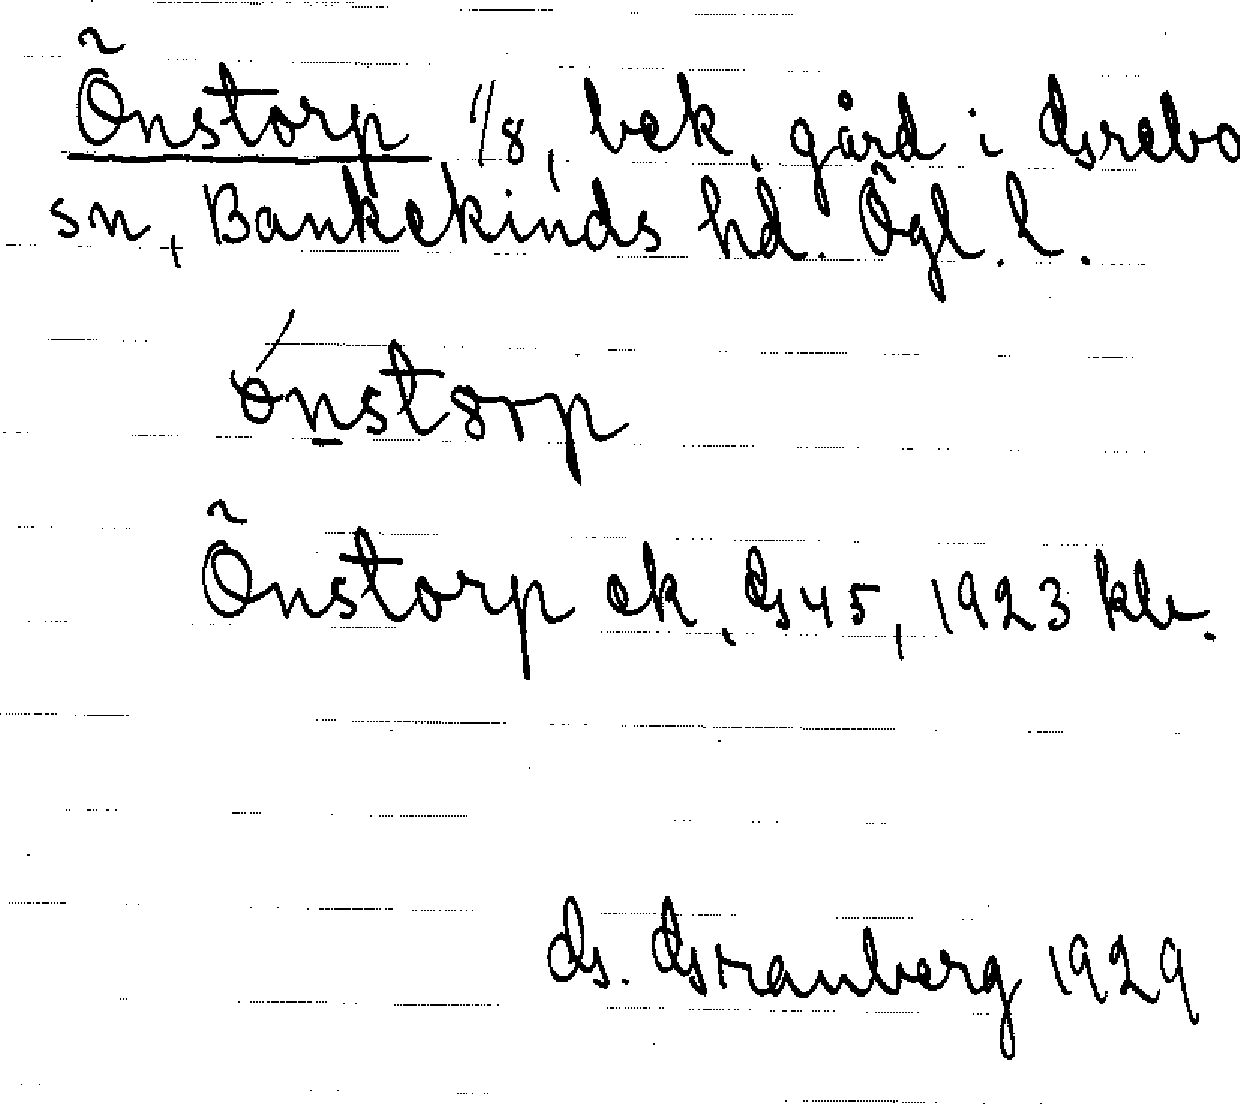 Õnstorp 1/8, bek. gård i Grebo
sn, Bankekinds hd. Õgl. l.
Õnstorp ek. G45, 1923 klv.
G. Granberg 1929